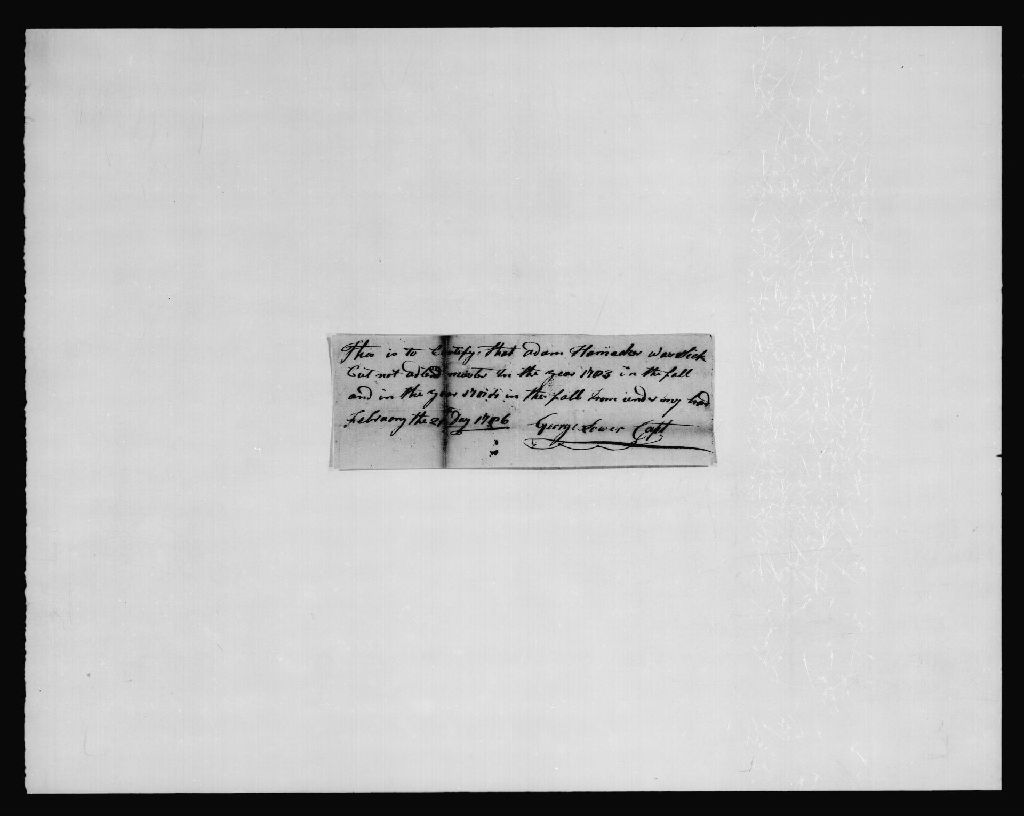 This is to Certify that adam Hamaker was Sick
but not at muster In the year 1783 in the fall
and in the year in the fall from under my hand
February the 21 Day 1786 George Lower Capt